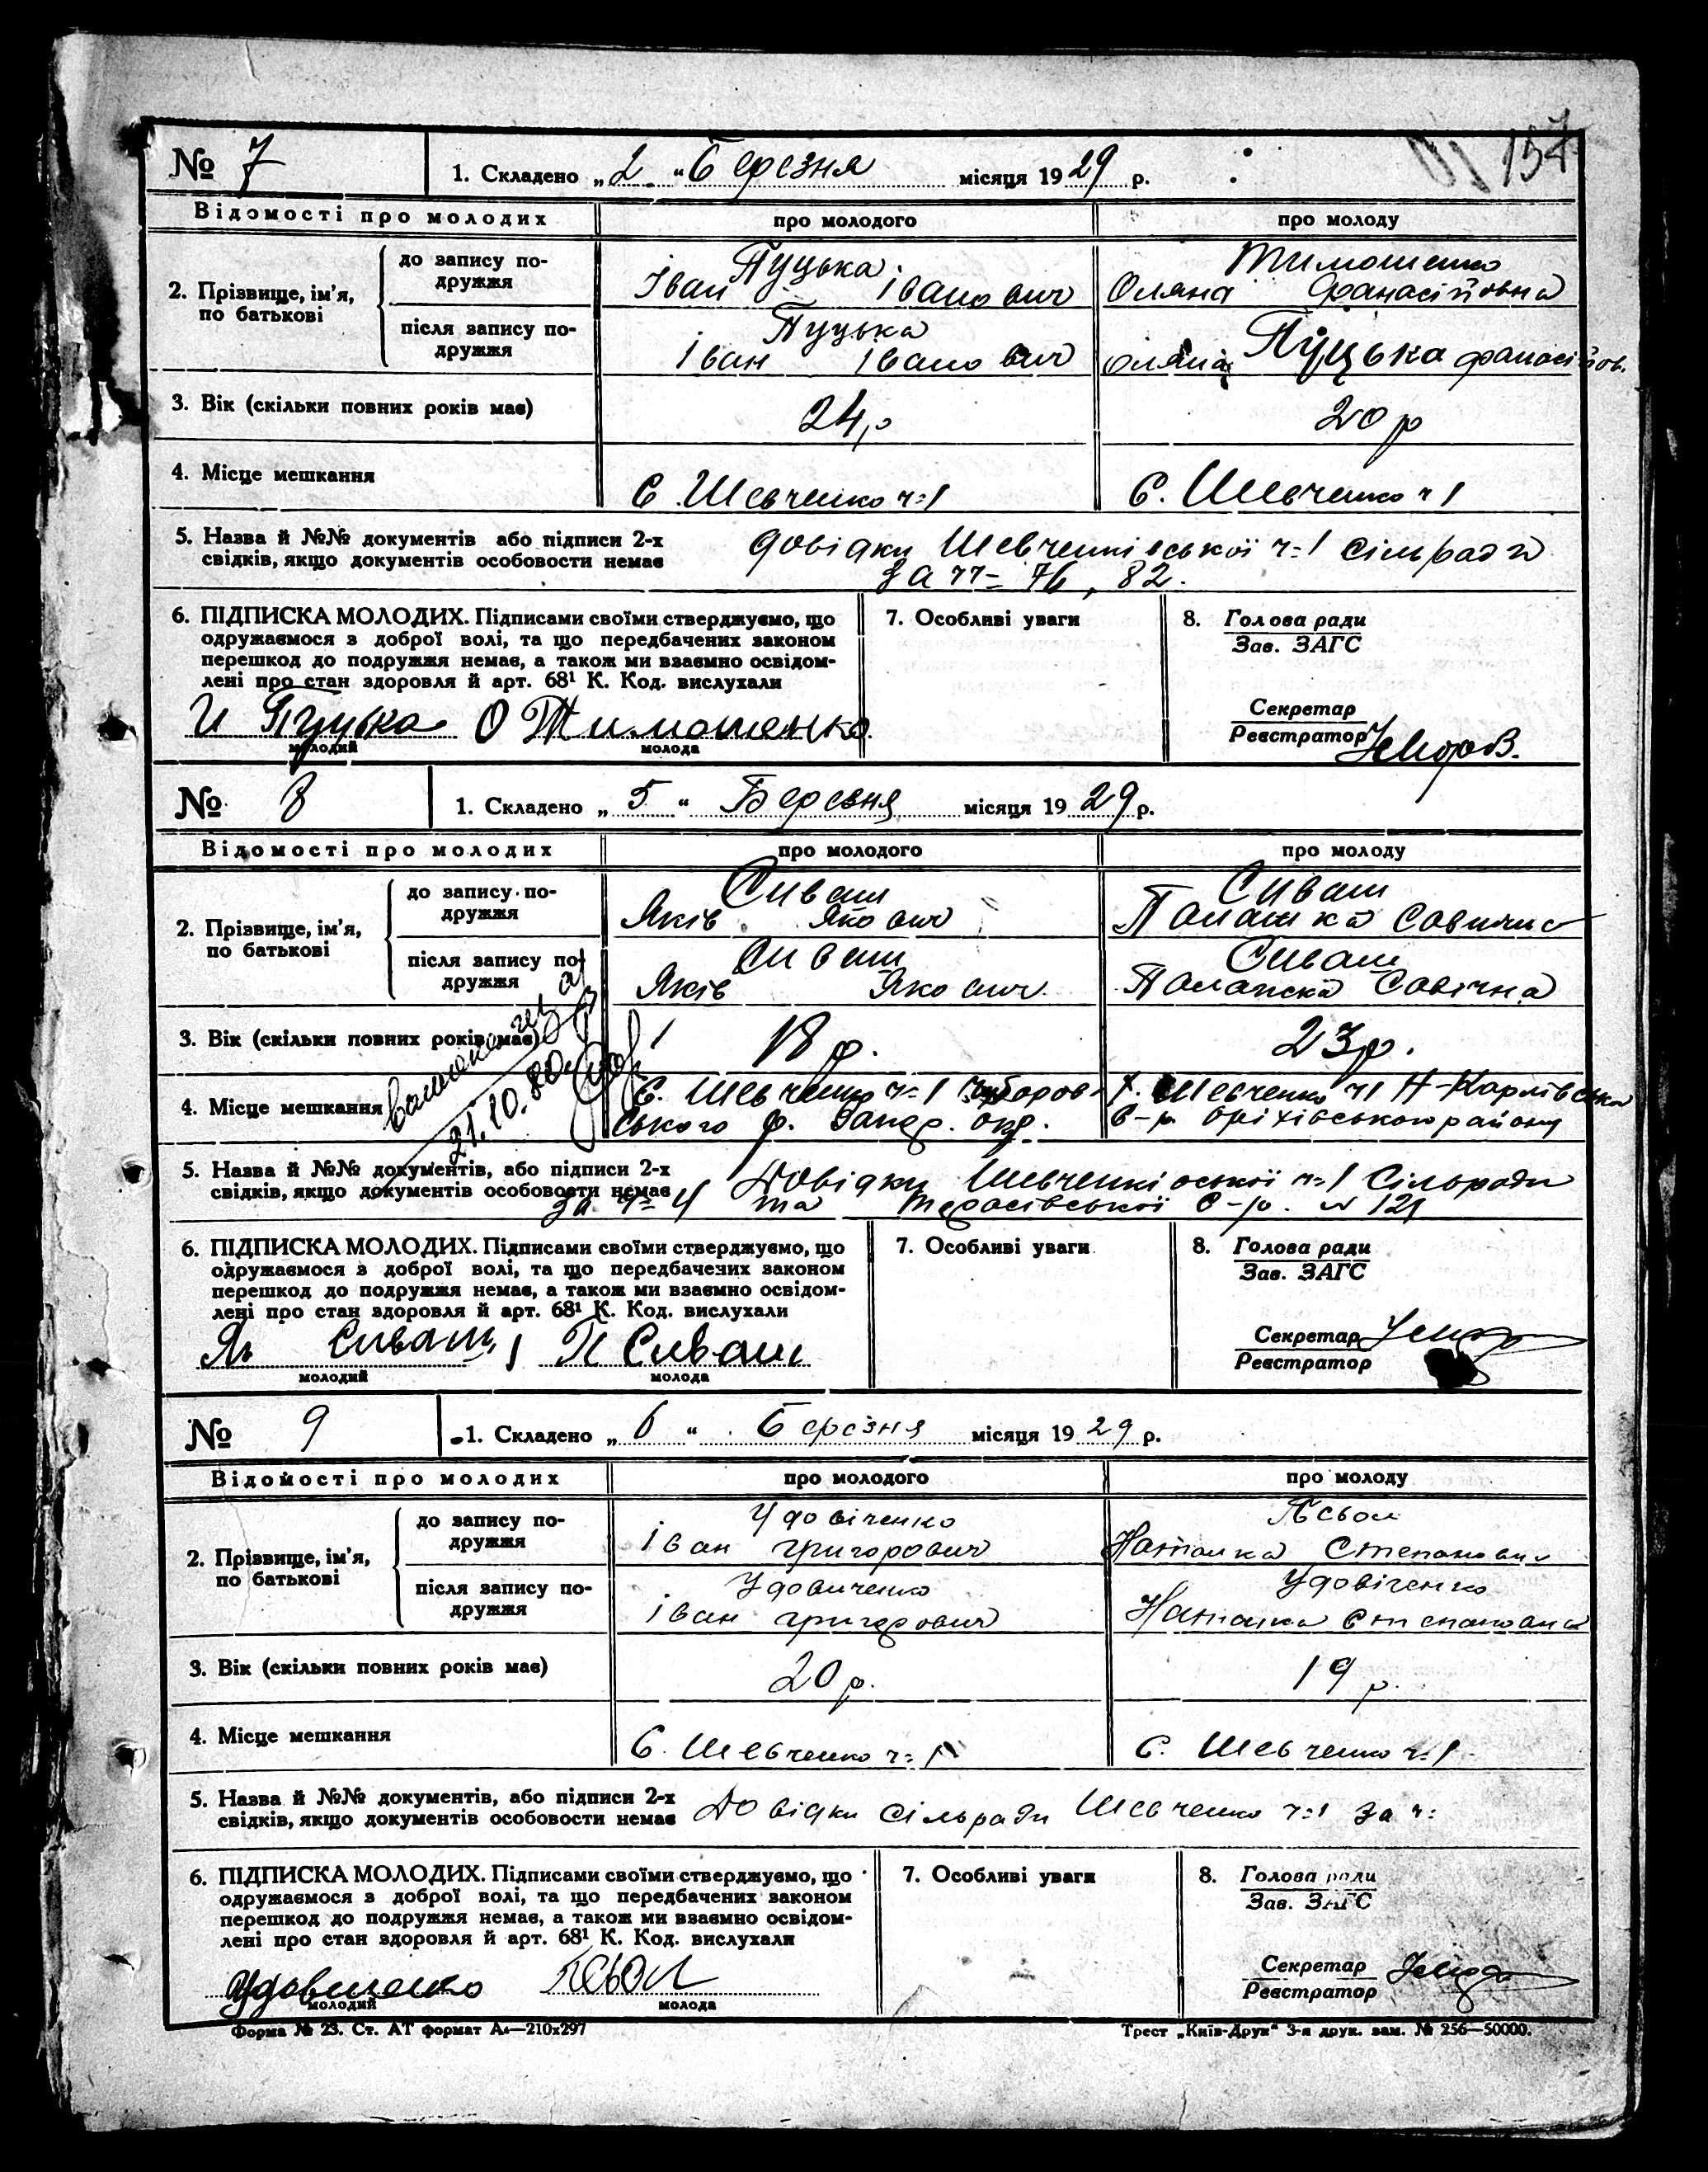 157
№ 7 1. Складено „2“ Березня місяця 1929 р.
Відомості про молодих про молодого про молоду
2. Прізвище, ім'я, по батькові
до запису по-
дружжя
Пуцька Тимошенко
Іван Іванович Оляна Фанасіївна
після запису по-
дружжя
Пуцька Пуцька
Іван Іванович Оляна Фанасіїов.
3. Вік (скільки повних років має) 24 р 20 р
4. Місце мешкання С. Шевченко ч=1 С. Шевченко ч 1
5. Назва й №№ документів або підписи 2-х
свідків, якщо документів особовости немає
Довідки Шевченківської ч=1 сільради
за чч= 76, 82.
6. ПІДПИСКА МОЛОДИХ. Підписами своїми стверджуємо, що
одружаємося з доброї волі, та що передбачених законом
перешкод до подружжя немає, а також ми взаємно освідом-
лені про стан здоровля й арт. 68¹ К. Код. вислухали
И Пуцька О Тимошенко
молодий молода
7. Особливі уваги
8. Голова ради
Зав. ЗАГС
Секретар
Реєстратор
№ 8 1. Складено „5“ Березня місяця 1929 р.
Відомості про молодих про молодого про молоду
2. Прізвище, ім'я,
по батькові
до запису по-
дружжя
Сиваш Сиваш
Яків Якович Палашка
після запису по-
дружжя
Сиваш Сиваш
Яків Якович Савічна
3. Вік (скільки повних років має) 18 р. 23 р.
4. Місце мешкання
С. Шевченко ч=1 Шевченко ч1 Н-Карлівська
ського р. Запор. окр. с-р. Оріхівського району
21.10.80
5. Назва й №№ документів, або підписи 2-х
свідків, якщо документів особовости немає
Довідки Шевченківської ч=1 Сільради
за ч= 4 та Тарасівської с-р. № 121
6. ПІДПИСКА МОЛОДИХ. Підписами своїми стверджуємо, що
одружаємося з доброї волі, та що передбачених законом
перешкод до подружжя немає, а також ми взаємно освідом-
лені про стан здоровля й арт. 68¹ К. Код. вислухали
Як Сиваш П Сиваш
молодий молода
7. Особливі уваги
8. Голова ради
Зав. ЗАГС
Секретар
Реєстратор
№ 9 1. Складено „6“ Березня місяця 1929 р.
Відомості про молодих про молодого про молоду
2. Прізвище, ім'я,
по батькові
до запису по-
дружжя
Удовіченко Псьол
Іван Григорович Наталка
після запису по-
дружжя
Удовиченко Удовіченко
Іван Григорович Наталка Степановна
3. Вік (скільки повних років має) 20 р. 19 р.
4. Місце мешкання С. Шевченко ч=1 С. Шевченко ч=1
5. Назва й №№ документів, або підписи 2-х
свідків, якщо документів особовости немає
Довідки сільради Шевченко ч=1 за ч=
6. ПІДПИСКА МОЛОДИХ. Підписами своїми стверджуємо, що
одружаємося з доброї волі, та що передбачених законом
перешкод до подружжя немає, а також ми взаємно освідом-
лені про стан здоровля й арт. 68¹ К. Код. вислухали
Удовиченко Псьол
молодий молода
7. Особливі уваги
8. Голова ради
Зав. ЗАГС
Секретар
Реєстратор
Форма № 23. Ст. АТ формат А₄—210х297 Трест „Київ-Друк“ 3-я друк. зам. № 256—50000.